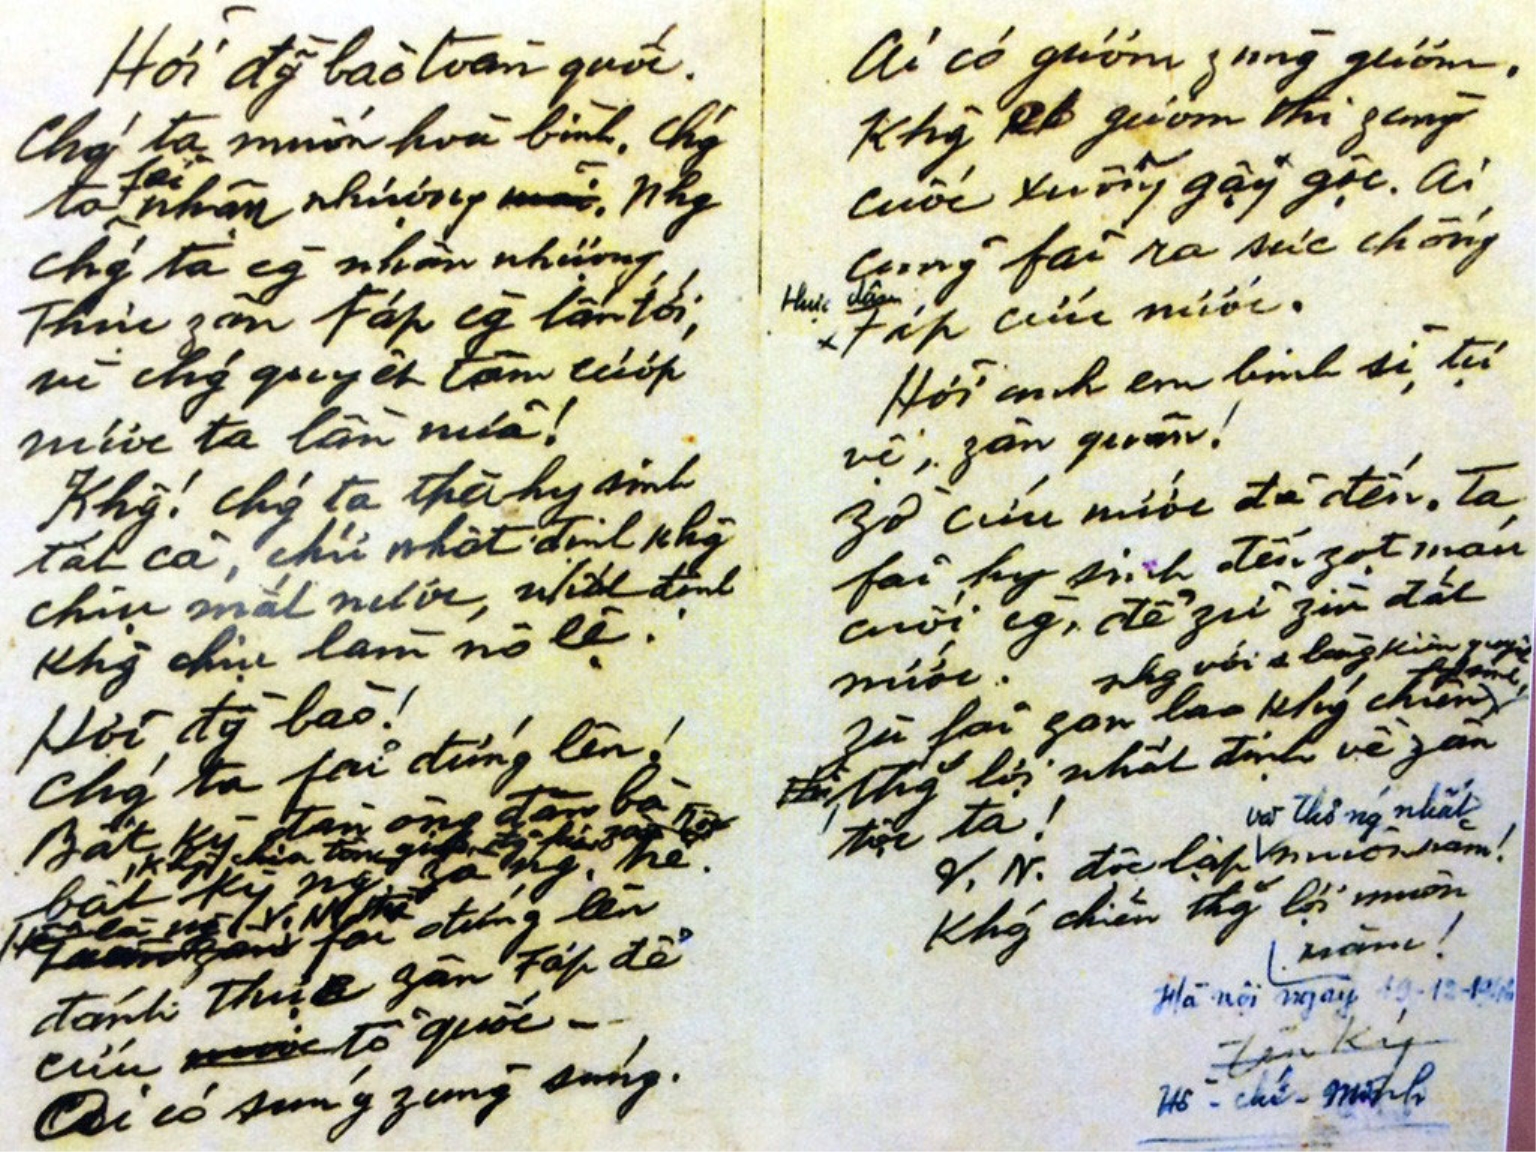 Hỡi đg̃ bào toàn quốc.
Chg' ta muốn hoà bình. Chg'
fải
ta nhân nhượng. Nhg
chg' ta cg̀ nhân nhượng,
Thực zân Fáp cg̀ lấn tới,
vì chg' quyết tâm cướp
nước ta lần nữa!
Khg̃! chg' ta thà hy sinh
tất cả, chứ nhất định khg̃
chịu mất nước, nhất định
khg̃ chịu làm nô lệ.
Hỡi đg̃ bào!
Chg' ta fải đứng lên!
Bất kỳ đàn ông đàn bà
bất kỳ ng. zà ng. trẻ.
Hễ là ng. V.N. thì
fải đứng lên
đánh thực zân Fáp để
cứu tổ quốc –
Ai có súng zùng súng.
Ai có gươm zùng gươm.
Khg̃ gươm thì zùng
cuốc xuổng gậy gộc. Ai
cũng fải ra sức chống
thực dân
Fáp cứu nước.
Hỡi anh em binh sĩ, tự
vệ, zân quân!
Zờ cứu nước đã đến. Ta
fải hy sinh đến zọt máu
cuối cg̀, để zữ zìn đất
nước.
nhg với 1 lòng kiên quyết
Zù fải zan lao khg' chiến
thg' lợi nhất định về zân
tộc ta!
và thống nhất
V. N. độc lập muôn năm!
Khg' chiến thg' lợi muôn
năm!
Hà nội ngày 19-12-1946
Hồ-chí-Minh